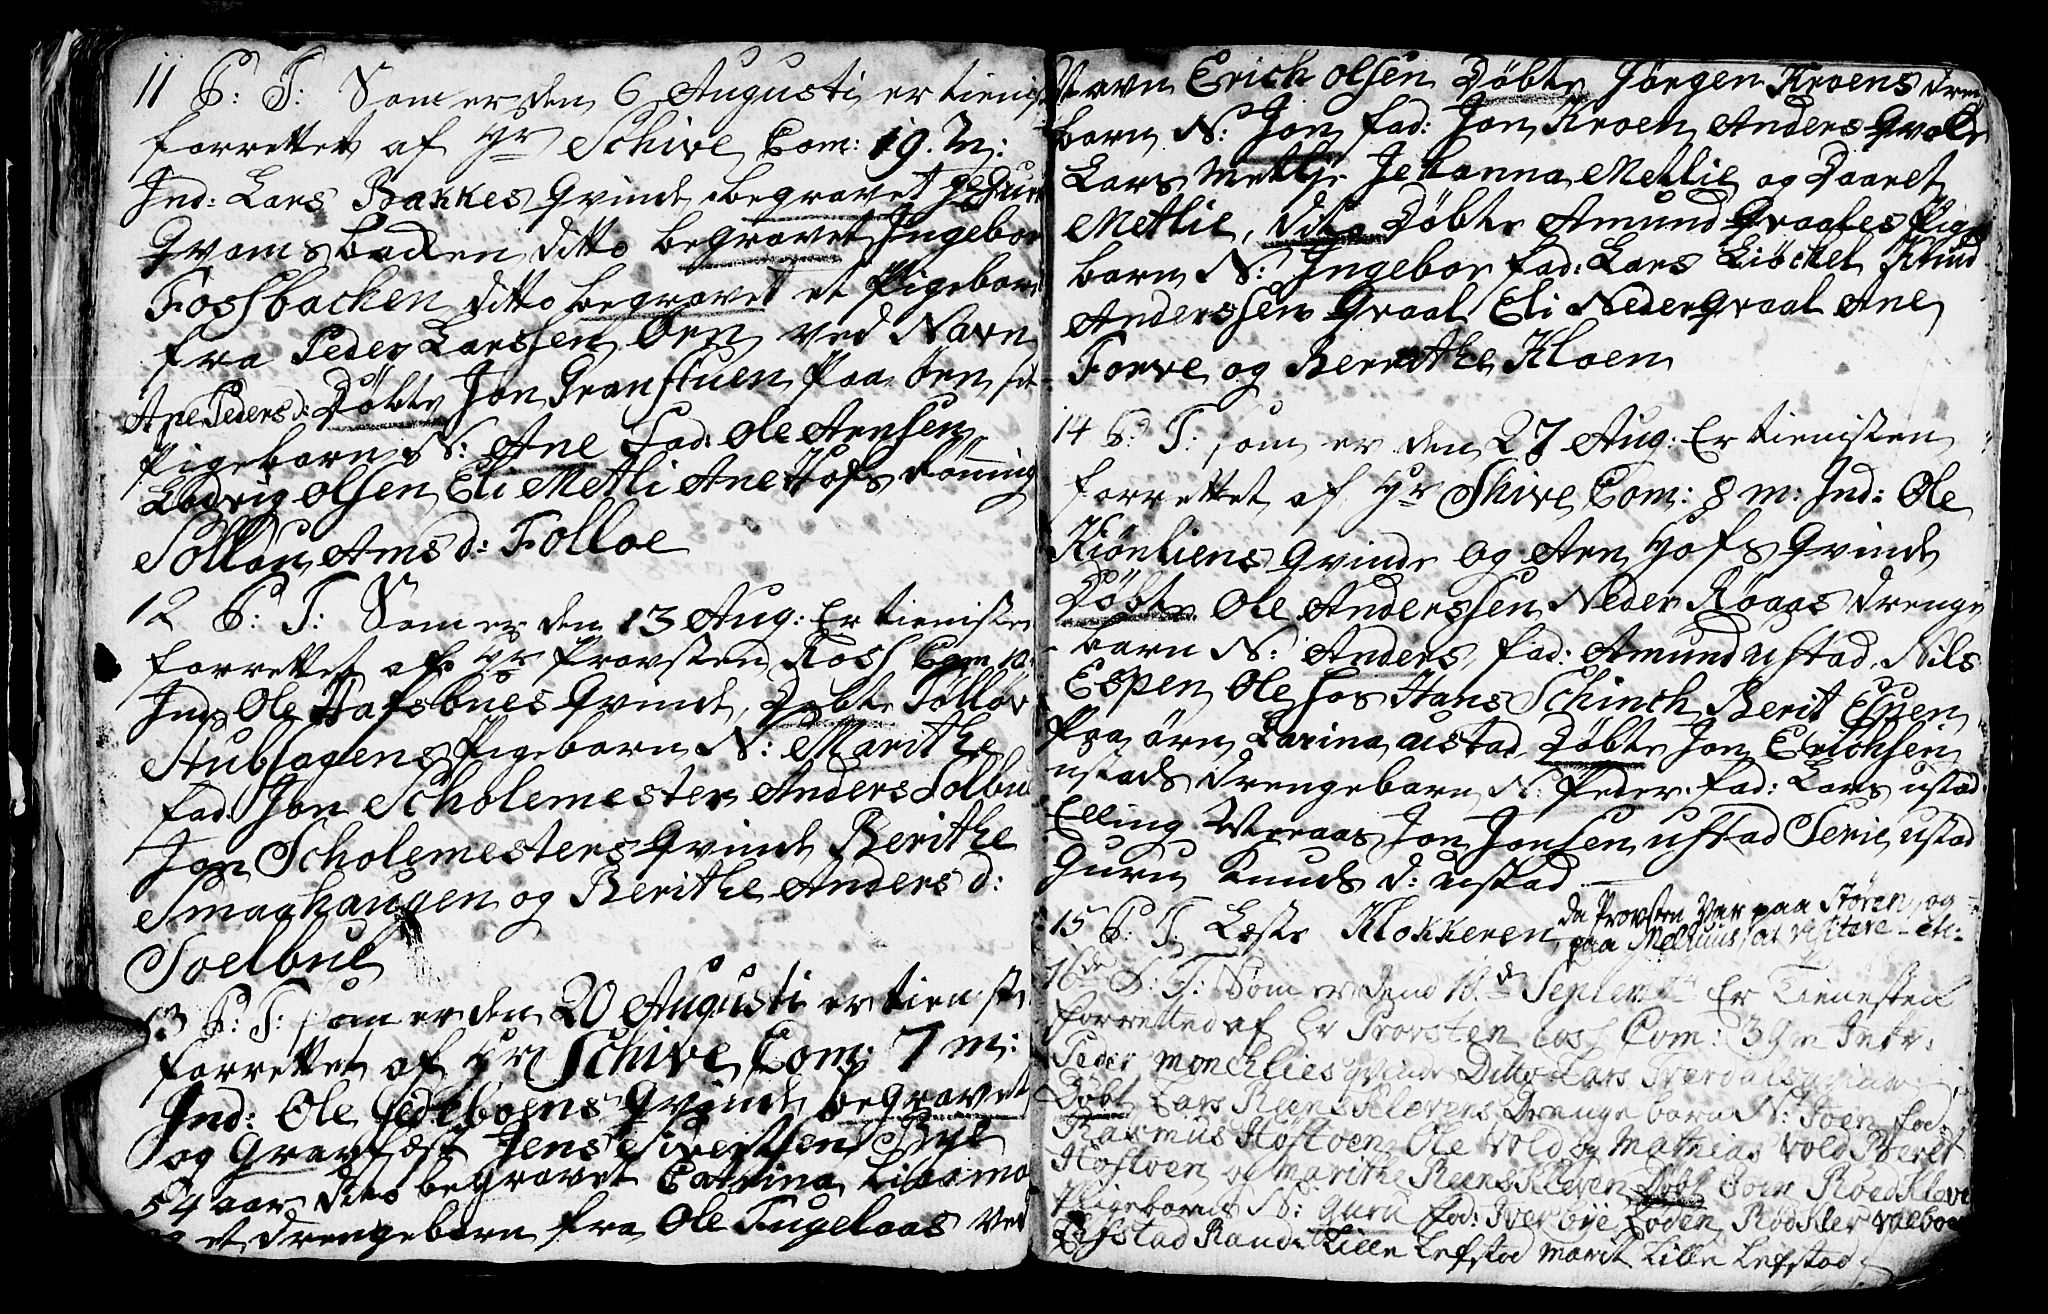 11 P: T: Som er den 6 Augusti er tienist
forrettet af Hr Schive Com: 19. m:
Ind: Lars Bakkes Qvinde, begravet
Qvamsbacken ditto begravet Ingebor
Fossbacken ditto begravet et Pigebarn
fra Peder Larssen Örn ved Navn
Ane Peders d: Döbte Jon Granstuen Paa Örn sit
Pigebarn N: Ane fad: Ole Arnsen
Ludvig Olsen Eli Metli Ane Hofs
Ams d: Folloe
12 P: T: Som er den 13 Aug: Er tienisten
forrettet af Hr Provsten Ross Com 10:
Ind: Ole Hafsbues Qvinde, Döbte Tollöv
Stubhagens Pigebarn N: Marithe
fad: Jon Scholemester Anders Solbu
Jon Scholemesters Qvinde Berithe
Smaghaugen og Berithe Anders d:
Soelbue
13 P: T: som er den 20 Augusti er tienste
forrettet af Hr Schive Com: 7 m:
Ind: Ole Gedeboens Qvinde begravet
og Gravfæst Jens Sivertsen Bye
54 aar dito begravet Catrina Liboemo
og et drengebarn fra Ole Fugelaas ved
Navn Erich Olsen Döbte Jörgen Kroens dren
barn N: Jon fad: Jon Kroen Anders Qvale
Lars Metlie Johanna Metlie og Daaret
Metlie, dito Döbte Amund Graales Pige
barn N: Ingebor fad: Lars Liöckel Knud
Anderssen Graal Eli Neder Graal Ane
Forve og Berrithe Kloen
14 P: T: som er den 27 Aug: Er tienisten
forrettet af Hr Skive Com: 8 m: Ind: Ole
Kiönliens Qvinde og Arn Hofs Qvinde
Döbte Ole Anderssen Neder Röaas drenge
barn N: Anders, fad: Amund ustad, Nils
Espen Ole hos Hans Schinch Berit Espen
Paa örn Karina austad Döbte Jon Erichsen
ustads drengebarn N: Peder. fad: Lars ustad
Elling Voraas Jon Jonsen ustad Serie ustad
Guru Knuds d: ustad
15 P: T. Læste Klokkeren da Provsten Var paa Stören, og
paa Melhuus at visitere etc:
16de P: T: Som er dend 10.de Septembr Er Tienesten
forretted af Hr Provsten Ross Com: 39 m Intr:
Peder Monchlies qvinde Ditto Lars Sverdals qvinde
Döbt Lars Reens Klevens Drengebarn N: Joen fad:
Rasmus Höstven Ole Vold og Mathias Vold Beret
Höstven og Marithe Reens Kleven Döbt Joen Röed Klev
Pigebarn N: Guru fad: Iver bye Loden Rödklev
Lefstad Rand: Lille Lefstad Marit Lille Lefstad